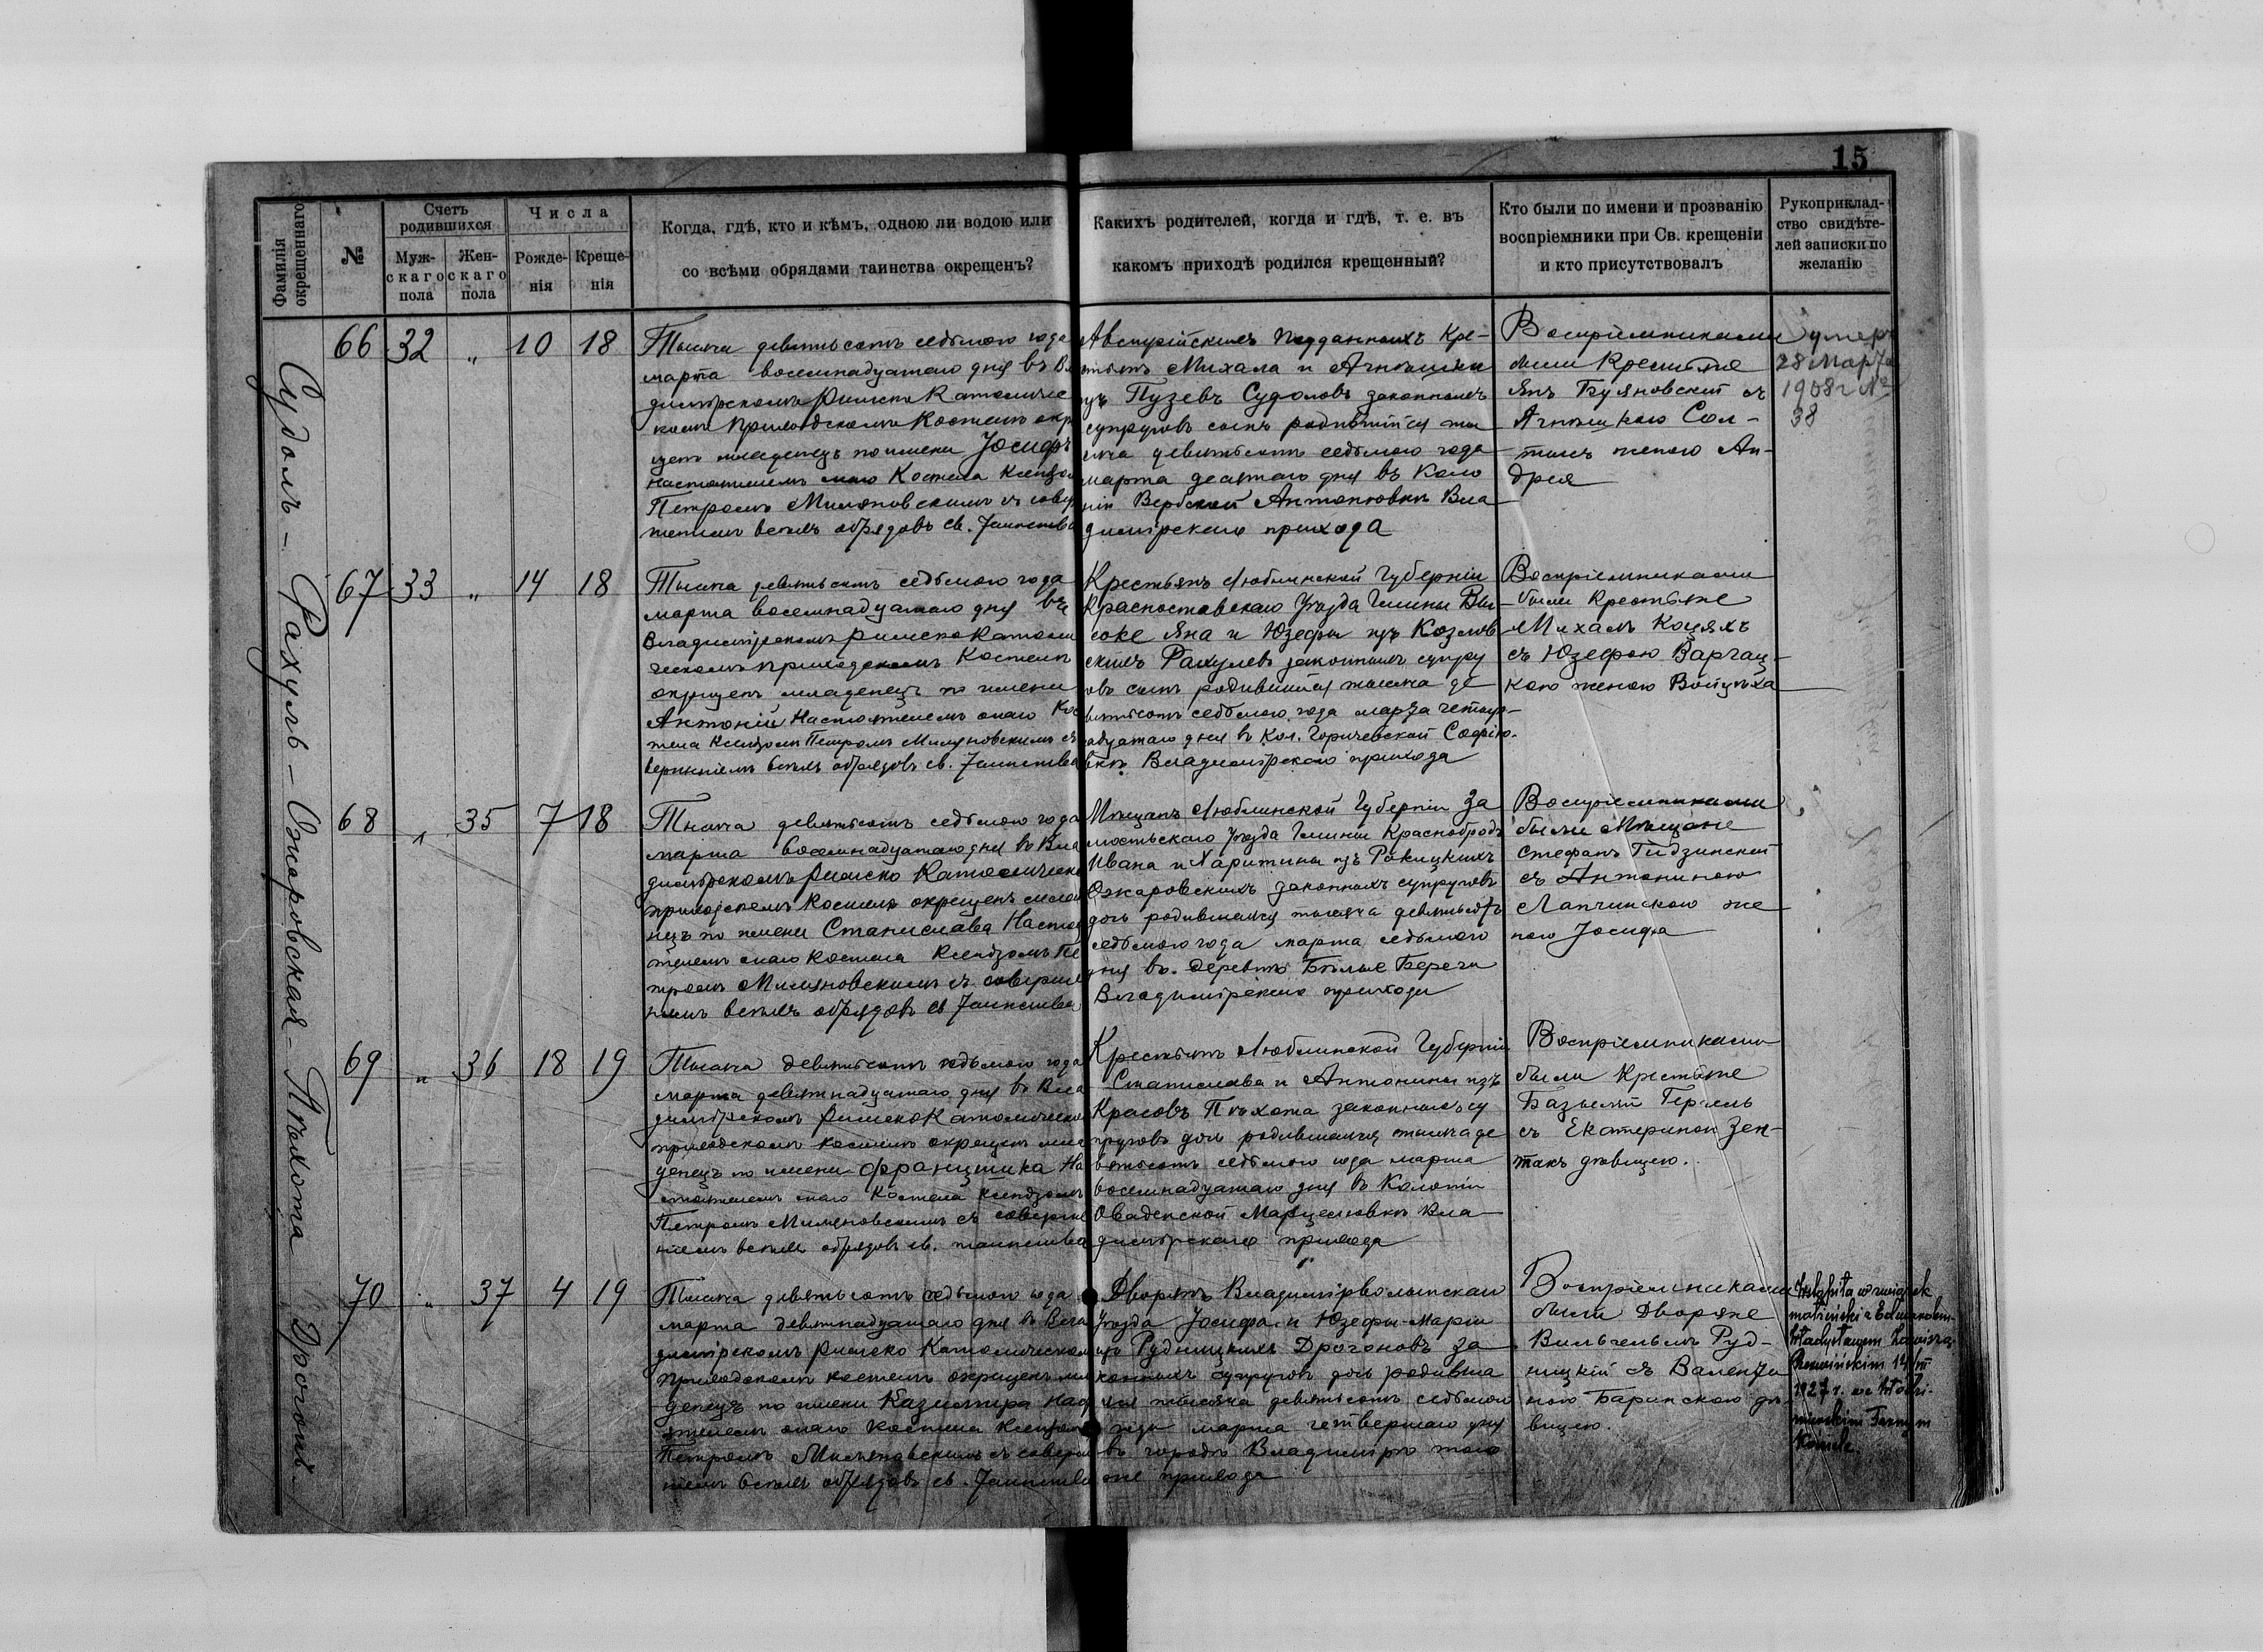 15
Фамилія окрещеннаго
№
Счетъ родившихся
Муж-
скаго
пола
Жен-
скаго
пола
Числа
Рожде-
нія
Креще-
нія
Когда, гдѣ, кто и кѣмъ, одною ли водою или
со всѣми обрядами таинства окрещенъ?
Каких родителей, когда и гдѣ, т. е. въ
какомъ приходѣ родился крещенный?
Кто были по имени и прозванію
воспріемники при Св. крещеніи
и кто присутствовалъ
Рукоприклад-
ство свидѣте-
лей записки по
желанію
Судолъ – Рахуль – Ожаровская – Пѣхота – Дрогонъ
66 32 „ 10 18
Тысяча девятьсотъ седьмого года
марта восемнадцатаго дня въ Вла
димірскомъ Римско Католичес
комъ приходскомъ Костелѣ окр
щенъ младенецъ по имени Іосифъ
настоятелемъ онаго Костела Ксендзом
Петромъ Миляновскимъ съ совер
шеніем всѣхъ обрядовъ св. Таинства
Австрійскихъ подданныхъ Кре-
стьянъ Михала и Агнѣшки
изъ Пузевъ Судоловъ законныхъ
супруговъ сынъ родившійся ты
сяча девятьсотъ седьмого года
марта десятаго дня въ Коло
ніи Вербской Антоновкѣ Вла
димірскаго прихода
Воспріемниками
были Крестьяне
Янъ Буяновскій съ
Агнѣшкою Сол-
тысъ женою Ан-
дрея
Умеръ
28 Марта
1908 г №
38
67 33 „ 14 18
Тысяча девятьсотъ седьмого года
марта восемнадцатаго дня въ
Владимірскомъ римско Католи
ческомъ приходскомъ Костелѣ
окрещенъ младенецъ по имени
Антоній Настоятелемъ онаго Кос
тела Ксендзомъ Петромъ Миляновскимъ съ
вершеніемъ всѣхъ обрядовъ св. Таинства
Крестьянъ Люблинской Губерніи
Красноставскаго Уѣзда Гмины Вы
соке Яна и Юзефы изъ Козлов
скихъ Рахулевъ законныхъ супру
говъ сынъ родившійся тысяча де
вятьсотъ седьмого года марта четыр-
надцатаго дня въ Кол. Горичевской Софію-
вкѣ Владимірскаго прихода
Воспріемниками
были Крестьяне
Михалъ Коцяхъ
съ Юзефою Варгац-
кою женою Войцѣха
68 „ 35 7 18
Тысяча девятьсотъ седьмого года
марта восемнадцатаго дня въ Вла
димірскомъ Римско Католическо
приходскомъ Костелѣ окрещенъ младе
нецъ по имени Станислава Настоя
телемъ онаго Костела Ксендзомъ Пе
тромъ Миляновскимъ съ соверше
ніемъ всѣхъ обрядовъ св Таинства
Мѣщанъ Люблинской Губерніи За
мостьскаго Уѣзда Гмины Краснобродъ
Ивана и Харитины изъ Ракицкихъ
Ожаровскихъ законныхъ супруговъ
дочь родившаяся тысяча девятьсотъ
седьмого года марта седьмого
дня въ деревнѣ Бѣлые Береги
Владимірскаго прихода
Воспріемниками
были Мѣщане
Стефанъ Гидзинскій
съ Антониною
Лапчинскою же
ною Іосифа
69 „ 36 18 19
Тысяча девятьсотъ седьмого года
марта девятнадцатаго дня въ Вла
димірскомъ римскокатолическо
приходскомъ костелѣ окрещенъ мла
денецъ по имени Францишка На
стоятелемъ онаго Костела Ксендзомъ
Петромъ Миляновскимъ съ соверше
ніемъ всѣхъ обрядовъ св. таинства
Крестьянъ Люблинской Губерніи
Станислава и Антонины изъ
Красовъ Пѣхота законныхъ су
пруговъ дочь родившаяся тысяча де
вятьсотъ седьмого года марта
восемнадцатаго дня въ Колоніи
Оваденской Марцелювкѣ Вла
димірскаго прихода
Воспріемниками
были Крестьяне
Базылій Гергель
съ Екатериной Зен-
такъ дѣвицею.
70 „ 37 4 19
Тысяча девятьсотъ седьмого года
марта девятнадцатаго дня въ Вла
димірскомъ римско Католическомъ
приходскомъ костелѣ окрещенъ мла
денецъ по имени Казимира Нас
ятелемъ онаго Костела Ксендзомъ
Петромъ Миляновскимъ съ соверше
ніемъ всѣхъ обрядовъ св. Таинства
Дворянъ Владимірволынскаго
Уѣзда Іосифа и Юзефы-Маріи
изъ Рудницкихъ Дрогоновъ за
конныхъ супруговъ дочь родивша
яся тысяча девятьсотъ седьмого
года марта четвертаго дня
въ городѣ Владимірѣ того
же прихода
Воспріемниками
были Дворяне
Вильгельмъ Руд-
ницкій съ Валенти
ною Баринскою дѣ
вицею.
Wstąpiła w związek
małżeński z Edwardem-
Władysławem
14/VIII
1927 r. we Włodzi-
mierskim Farnym
Kościele.